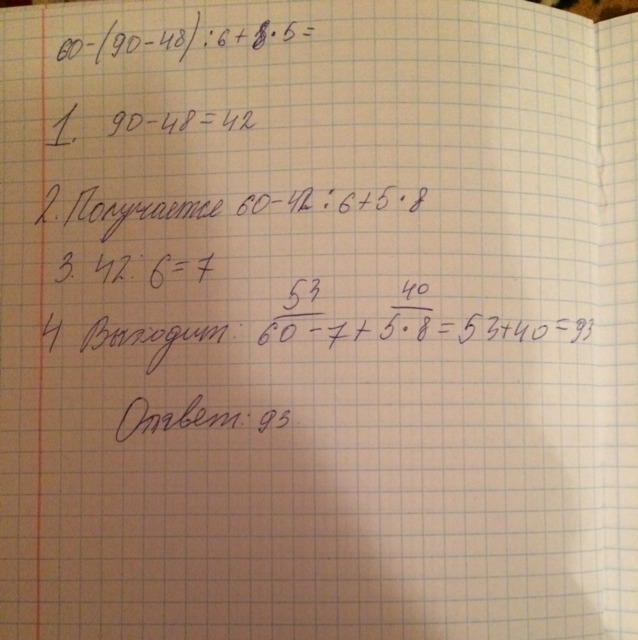 60-(90-48):6+8·5=
1. 90-48=42
2. Получается 60-42:6+5·8
3. 42:6=7
53 40
4 Выходит: 60-7+5·8=53+40=93
Ответ: 93